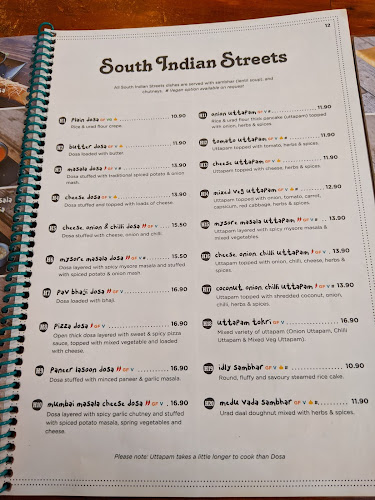 12
South Indian Streets
All South Indian Streets dishes are served with sambhar (lentil soup), and
chutneys. # Vegan option available on request
Plain dosa GF VG 10.90
Rice & urad flour crepe.
butter dosa GF V 11.90
Dosa loaded with butter.
masala dosa GF V 13.90
Dosa stuffed with traditional spiced potato & onion
mash.
cheese dosa GF V 13.90
Dosa stuffed and topped with loads of cheese.
cheese, onion & chilli dosa GF V 15.50
Dosa stuffed with cheese, onion and chilli.
mysore masala dosa GF V 15.50
Dosa layered with spicy mysore masala and stuffed
with spiced potato & onion mash.
Pav bhaji dosa GF V 16.90
Dosa loaded with bhaji.
Pizza dosa GF V 16.90
Open thick dosa layered with sweet & spicy pizza
sauce, topped with mixed vegetable and loaded
with cheese.
Paneer lasoon dosa GF V 16.90
Dosa stuffed with minced paneer & garlic masala.
mumbai masala cheese dosa GF V 16.90
Dosa layered with spicy garlic chutney and stuffed
with spiced potato masala, spring vegetables and
cheese.
onion uttapam GF V # 11.90
Rice & urad flour thick pancake (uttapam) topped
with onion, herbs & spices.
tomato uttapam GF V # 11.90
Uttapam topped with tomato, herbs & spices.
cheese uttapam GF V 11.90
Uttapam topped with cheese, herbs & spices.
mixed veg uttapam GF V # 12.90
Uttapam topped with onion, tomato, carrot,
capsicum, red cabbage, herbs & spices.
mysore masala uttapam GF V # 13.90
Uttapam layered with spicy mysore masala &
mixed vegetables.
cheese, onion chilli uttapam GF V 13.90
Uttapam topped with onion, chilli, cheese, herbs &
spices.
coconut, onion chilli uttapam GF V # 13.90
Uttapam topped with shredded coconut, onion,
chilli, herbs & spices.
uttapam tokri GF V 16.90
Mixed variety of uttapam (Onion Uttapam, Chilli
Uttapam & Mixed Veg Uttapam).
idly sambhar GF V # 10.90
Round, fluffy and savoury steamed rice cake.
medu vada sambhar GF V # 11.90
Urad daal doughnut mixed with herbs & spices.
Please note: Uttapam takes a little longer to cook than Dosa